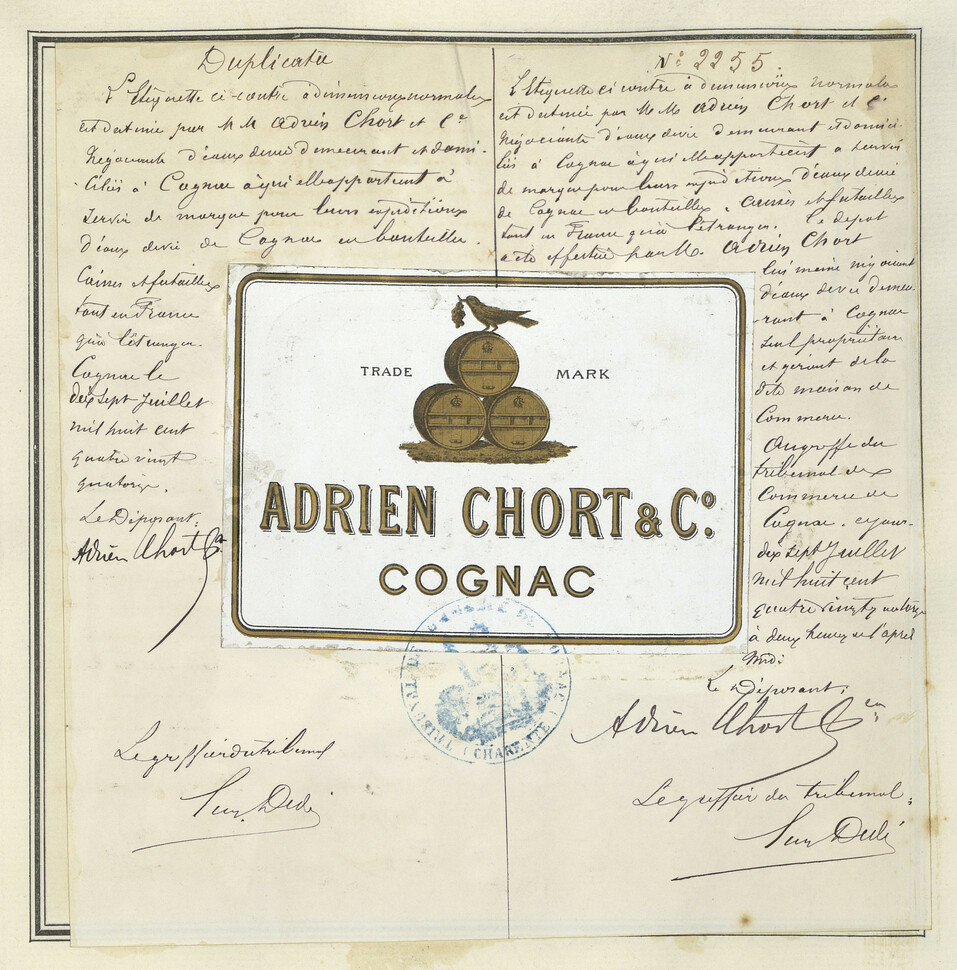 Duplicata
L'Etiquette ci-contre à dimensions normales
est destinée par M M Adrien Chort et Cie
Négociants d'eaux devie demeurant et domi-
ciliés à Cognac à qui elle appartient à
servir de marque pour leurs expéditions
d'eaux devie de Cognac en bouteilles.
Caisses et futailles
tant en France
qu'à l'étranger.
Cognac le
dix sept Juillet
mil huit cent
quatre vingt
quatorze.
Le Déposant:
Adrien Chort Cie
Le greffier du tribunal
Nº 2255.
L'Etiquette ci contre à dimensions normales
est destinée par M M Adrien Chort et Cie
Négociants d'eaux devie demeurant et domici-
liés à Cognac à qui elle appartient à servir
de marque pour leurs expéditions d'eaux devie
de Cognac en bouteilles, caisses et futailles
tant en France qu'à l'étranger. Ce dépot
a été effectué par M. Adrien Chort
lui même négociant
d'eaux devie demeu-
-rant à Cognac
seul propriétaire
et gérant de la
dite maison de
Commerce.
Au greffe du
tribunal de
Commerce de
Cognac. ce jour-
dix sept Juillet
mil huit cent
quatre vingt quatorze
à deux heures de l'après
Midi
Le Déposant;
Adrien Chort Cie
Le greffier du tribunal:
TRADE MARK
ADRIEN CHORT & Cº.
COGNAC
TRIBUNAL DE COMMERCE DE COGNAC (CHARENTE)